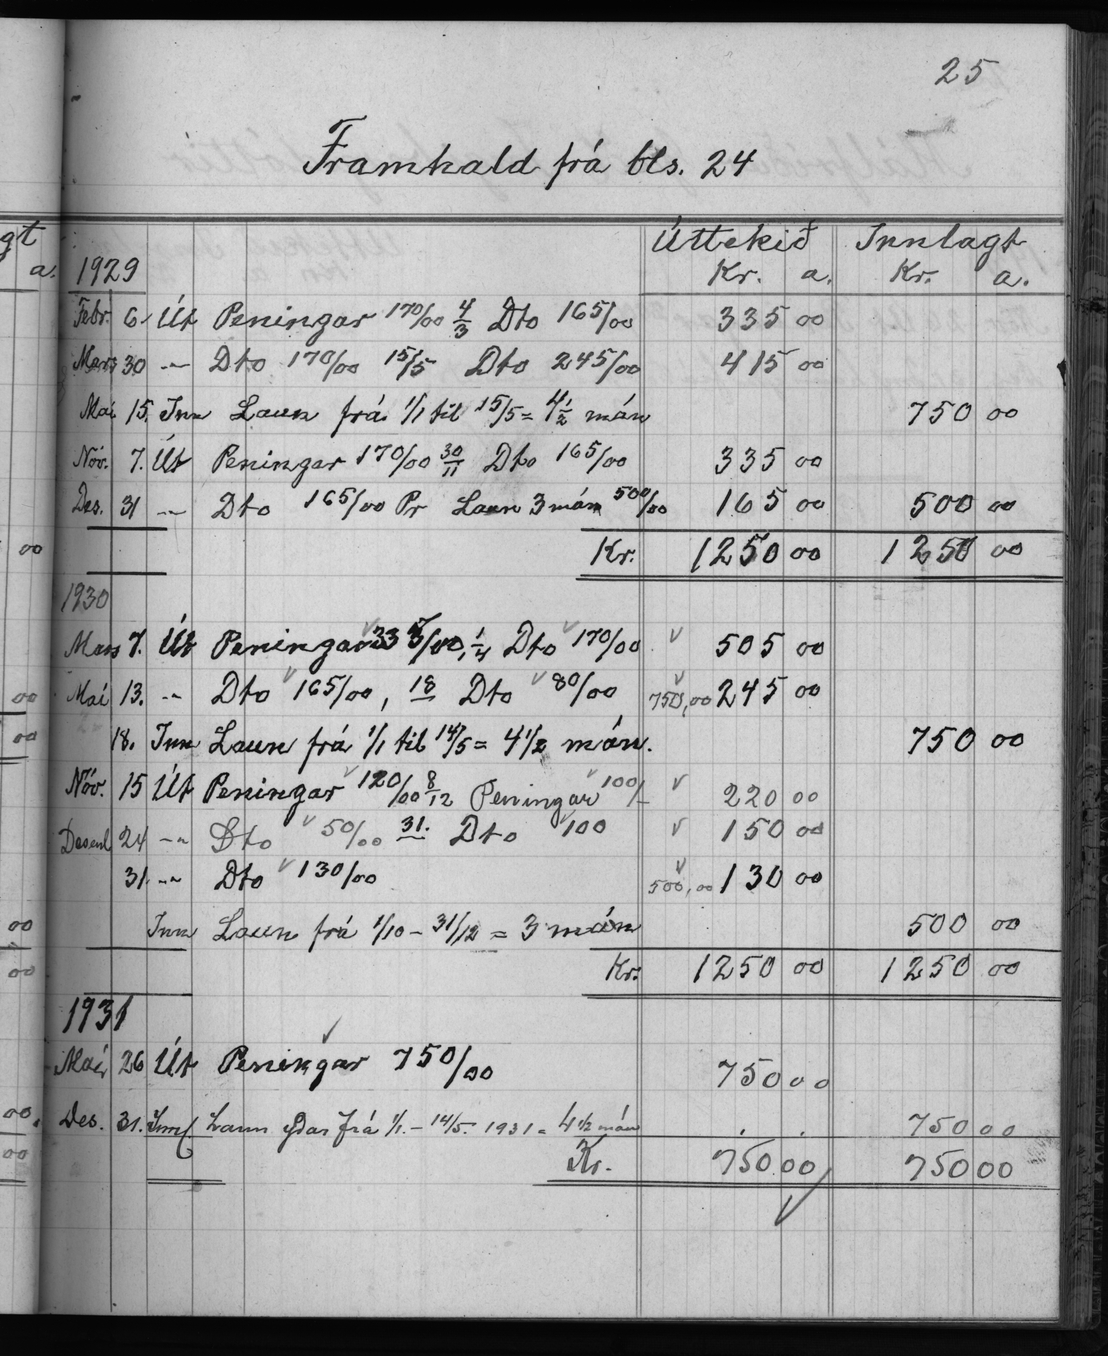 25
Framhald frá bls. 24
Úttekið Innlagt
1929 Kr. a. Kr. a.
Febr. 6. Út Peningar 170/00 4/3 Dto 165/00 335 00
Mars 30 -"- Dto 170/00 15/5 Dto 245/00 415 00
Mai 15. Inn Laun frá 1/1 til 15/5 = 4 1/2 mán 750 00
Nóv. 7. Út Peningar 170/00 30/11 Dto 165/00 335 00
Des. 31 -"- Dto 165/00 Pr Laun 3 mán 500/00 165 00 500 00
Kr. 1250 00 1250 00
1930
Mars 7. Út Peningar 335/00, 1/4 Dto 170/00 505 00
Mai 13. -"- Dto 165/00, 18 Dto 80/00 750,00 245 00
18. Inn Laun frá 1/1 til 14/5 = 4 1/2 mán. 750 00
Nóv. 15 Út Peningar 120/00 8/12 Peningar 100/- 220 00
24 -"- Dto 50/00 31. Dto 100 150 00
31. -"- Dto 130/00 500,00 130 00
Inn Laun frá 1/10 - 31/12 = 3 mán 500 00
Kr. 1250 00 1250 00
1931
Mai 26 Út Peningar 750/00 750 00
Des. 31. Laun yðar frá 1/1. - 14/5. 1931 = 4 1/2 mán 750 00
Kr. 750 00 750 00
gt
a.
00
00
00
00
00
00
00